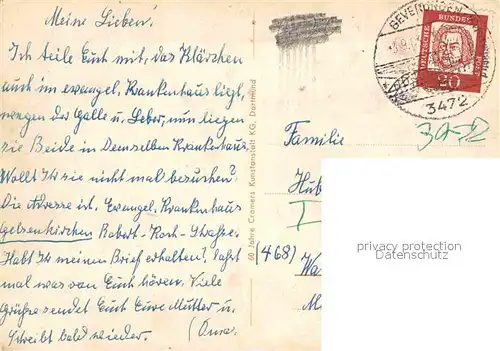 Meine Lieben.
Ich teile Euch mit, das Klärchen
auch im ewangel. Krankenhaus liegt,
wegen der Galle u. Leber, nun liegen
sie Beide in Demselben Krankenhaus.
Wollt Ihr sie nicht mal besuchen?
Die Adresse ist, Ewangel. Krankenhaus
Gelsenkirchen Robert-Koch-Strasse.
Habt Ihr meinen Brief erhalten? lasst
mal was von Euch hören. Viele
Grüsse sendet Euch Eure Mutter u.
Schreibt bald wieder. (Oma.
60 Jahre Cramers Kunstanstalt KG. Dortmund
BEVERUNGEN
3472
DEUTSCHE BUNDESPOST
20
Familie
Hub
(468)
privacy protection
Datenschutz